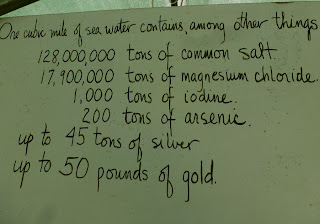 One cubic mile of sea water contains, among other things
128,000,000 tons of common salt.
17,900,000 tons of magnesium chloride.
1,000 tons of iodine.
200 tons of arsenic.
up to 45 tons of silver
up to 50 pounds of gold.